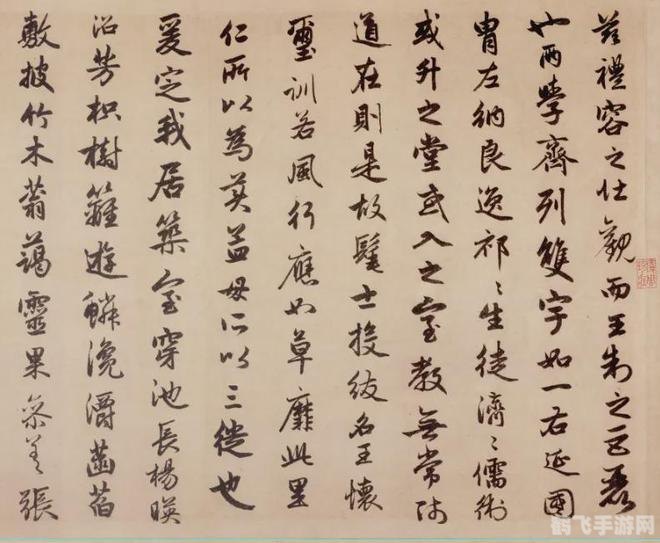 茲禮容之壮觀而王制之巨麗
也兩學齊列雙宇如一右延國
胄左納良逸祁〻生徒濟〻儒術
或升之堂或入之室教無常師
道在則是故髦士投紱名王懷
璽訓若風行應如草靡此里
仁所以為美孟母所以三徙也
爰定我居築室穿池長楊暎
沼芳枳樹籬遊鱗瀺灂菡萏
敷披竹木蓊藹靈果參差張
鹤飞手游网